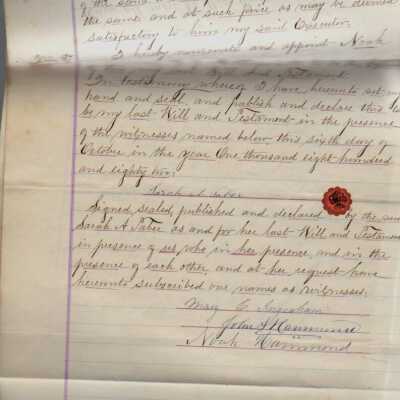 the same and at such price as may be deemed
satisfactory to him my said Executor.
I hereby nominate and appoint Noah
In testimony whereof I have hereunto set my
hand and seal and publish and declare this to
be my last Will and Testament in the presence
of the witnesses named below this sixth day of
October in the year One thousand eight hundred
and eighty two.
Sarah A Taber
Signed, sealed, published and declared by the said
Sarah A. Taber as and for her last Will and Testament
in presence of us, who in her presence, and in the
presence of each other, and at her request have
hereunto subscribed our names as witnesses.
Mary E.
John
Noah Hammond